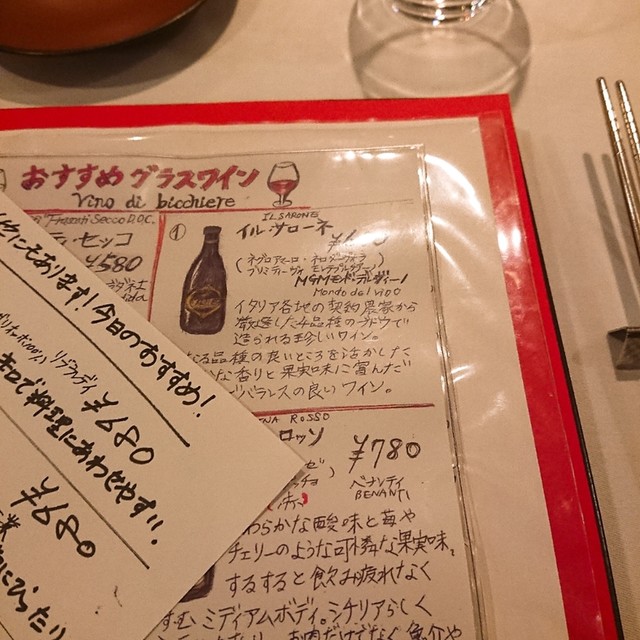 おすすめグラスワイン
Vino di bicchiere
Frascati Secco D.O.C.
セッコ
¥580
①
IL SARONE
イル・サローネ
ネグロアマーロ・ネロダーヴォラ
プリミティーヴォ モンテプルチアーノ
MGMモンド・デル・ヴィーノ
Mondo del vino
イタリア各地の契約農家から
厳選した4品種のブドウで
造られる珍しいワイン。
なる品種の良いところを活かした
かな香りと果実味に富んだ
バランスの良いワイン。
NA ROSSO
ロッソ
¥780
ベナンティ
BENANTI
わらかな酸味と苺や
チェリーのような可憐な果実味。
するすると飲み疲れなく
すむミディアムボディ。シチリアらしく
お肉だけでなく魚介や
かにもあります!今日のおすすめ!
¥680
辛口で料理にあわせやすい。
¥680
にぴったり